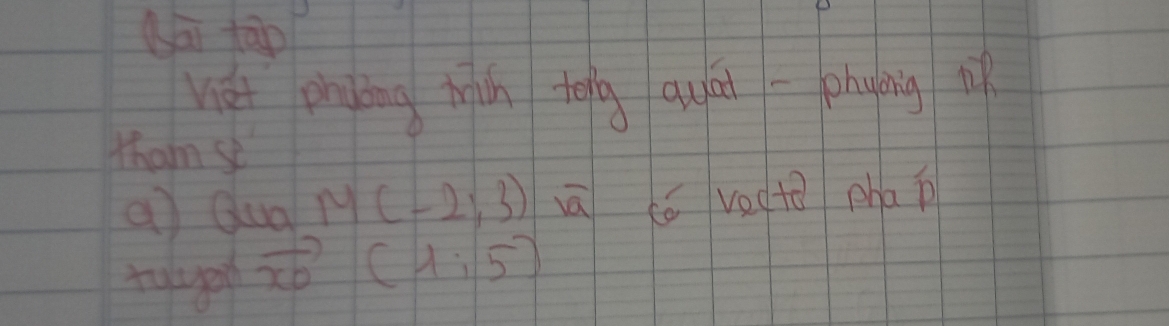 Bài tập
Viết phương trình tổng quát - phương tr
tham số
a) Qua M (-2; 3) và có vectơ pháp
tuyến (1; 5)